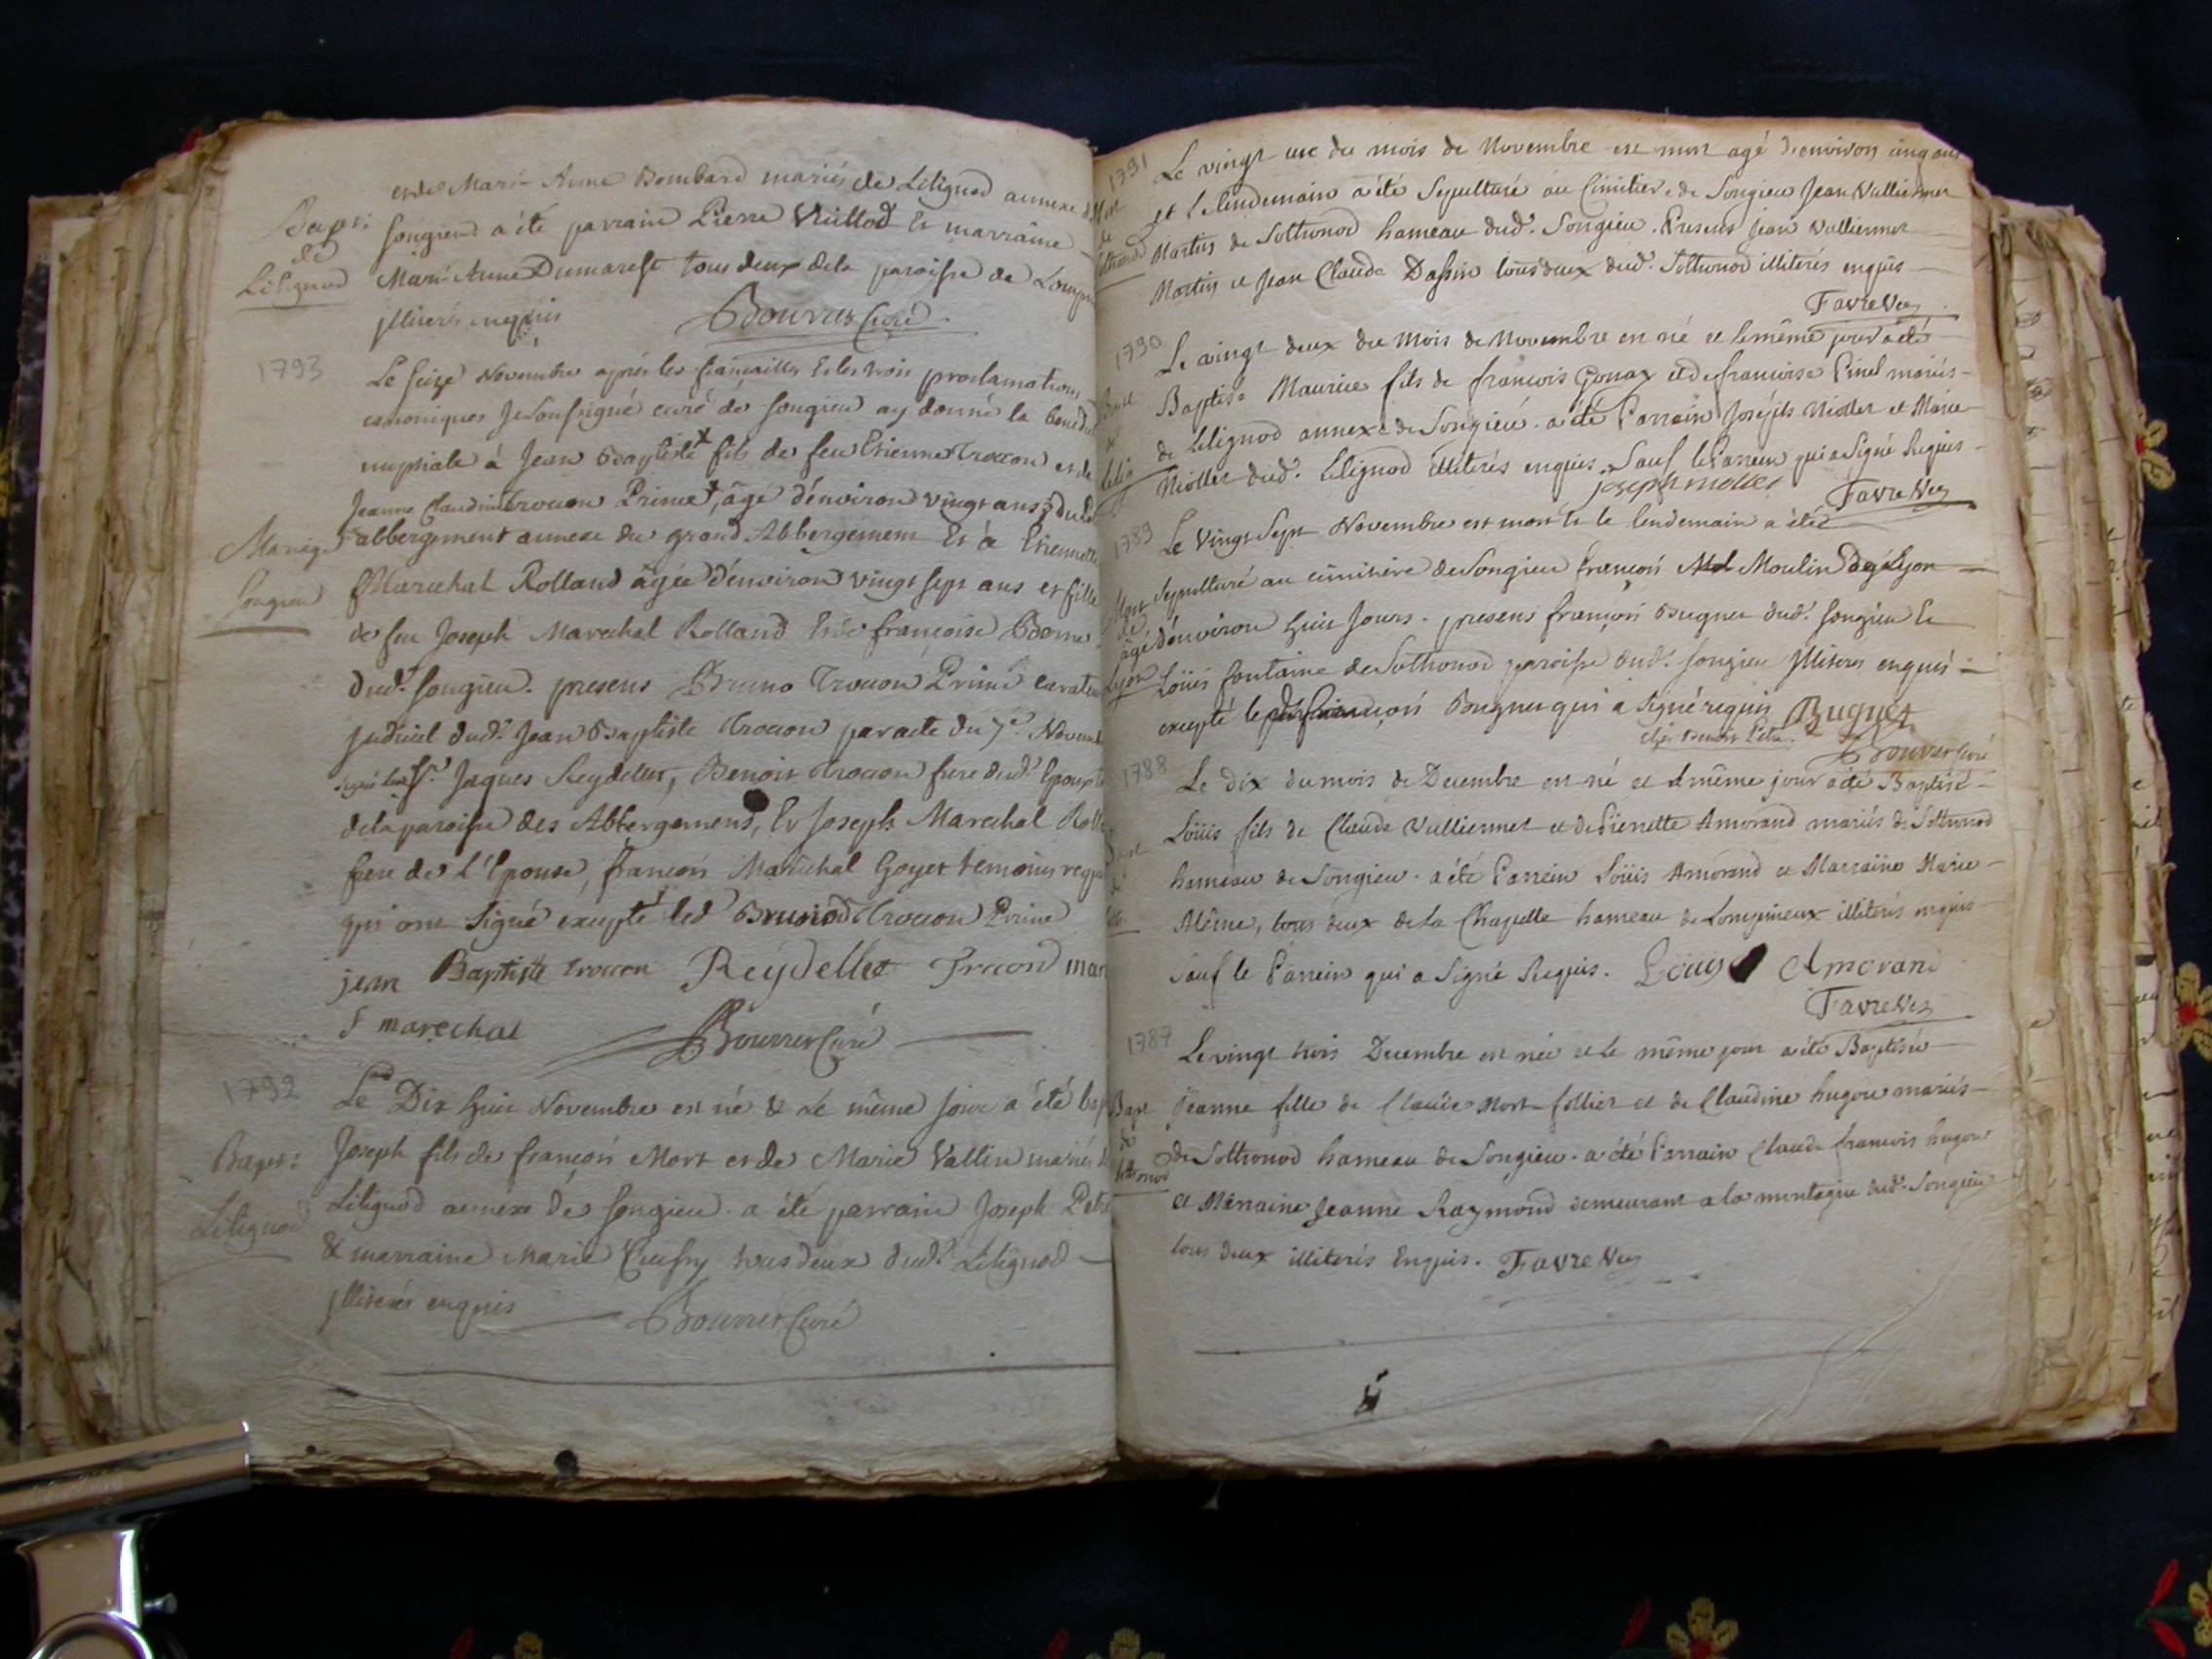 et de Marie Anne Bombard mariés de Lilignod annexe de
Bapt:
de
Lilignod
songieu a été parrain Pierre Vuillod et marraine
Marie Anne Dumarest tous deux de la paroisse de
jlliterés enquis Bouvret Curé
1793
Le seize Novembre après les fiançailles et les trois proclamations
canoniques Je soussigné curé de songieu ay donné la
nuptiale à Jean Baptiste fils de feu Etienne Trocon et de
Jeanne Claudine Trocon Prime, âgé d'environ vingt ans
Mariage
songieu
abbergement annexe du grand Abbergement Et à Etiennette
Marechal Rolland âgée d'environ vingt sept ans et fille
de feu Joseph Marechal Rolland Et de françoise
dud. songieu. presens Bruno Trocon Prime
judiciel dud. Jean Baptiste Trocon par acte du 7e
Sr. Jaques Reydellet, Benoit Trocon frere dud. Epoux
de la paroisse des Abbergemens, Et Joseph Marechal
frere de L'Epouse, françois Maréchal Goyet temoins
qui ont signé excepté led Bruno Trocon Prime
jean Baptiste trocon Reydellet Trocon
f marechal Bouvret Curé
1792
Le Dix huit Novembre est né & Le même jour a été
Bapt:
Lilignod
Joseph fils de françois Mort et de Marie Vallin mariés
Lilignod annexe de songieu. a été parrain Joseph
& marraine Marie tous deux dud. Lilignod
jlliterés enquis Bouvret Curé
1791
Le vingt une du mois de Novembre est mort agé d'environ cinq ans
et le lendemain a été Sepulturé au Cimitier de Songieu Jean Vulliermet
Martin de Sothonod hameau dud. Songieu. Presens Jean Vulliermet
Martin et Jean Claude Dassin tous deux dud. Sothonod illiterés enquis
Favre Vic
1790
Le vingt deux du Mois de Novembre est né et le même jour a été
Baptisé Maurice fils de françois Gonax et de francoise Pinel mariés
de Lilignod annexe de Songieu. a été Parrain Joseph Niollet et Marie
Niollet dud. Lilignod illiterés enquis. Sauf le Parrein qui a Signé Requis
joseph niollet Favre Vic
1789
Le Vingt Sept Novembre est mort Et le lendemain a été
Mort
de
Lyon
Sepulturé au cimitière de Songieu françois Moulin de Lyon
âgé d'environ huit Jours. presens françois Bugnet dud. songieu Et
Loüis fontaine de Sothonod paroisse dud. songieu jlliterés enquis
excepté le françois Bugnet qui a signé requis Buguet
chés Benoit
Bouvret Curé
1788
Le dix du mois de Decembre est né et le même jour a été Baptisé
Loüis fils de Claude Vulliermet et de Pierrette Amorand mariés de Sothonod
hameau de Songieu. a été Parrein Loüis Amorand et Marraine Marie
Même, tous deux de la Chapelle hameau de Lompnieux illiterés enquis
Sauf le Parrein qui a Signé Requis. Louys Amorand
Favre Vic
1787
Le vingt trois Decembre est née et le même jour a été Baptisée
Bapt
de
Sothonod
Jeanne fille de Claude Mort-follier et de Claudine hugon mariés
de Sothonod hameau de Songieu. a été Parrain Claude francois hugon
et Marraine Jeanne Raymond demeurant a la montagne dud. Songieu
tous deux illiterés Enquis. Favre Vic